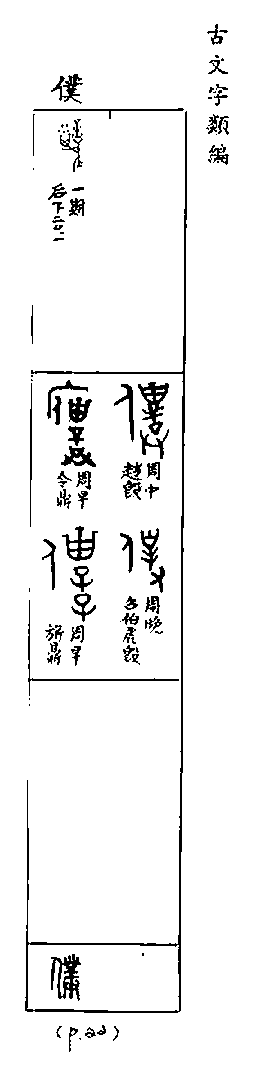 古文字類編
僕
一期
后下二〇·一
周中
趞𣪘
周早
令鼎
周晚
召伯虎𣪘
周早
旂鼎
僕
(p.22)